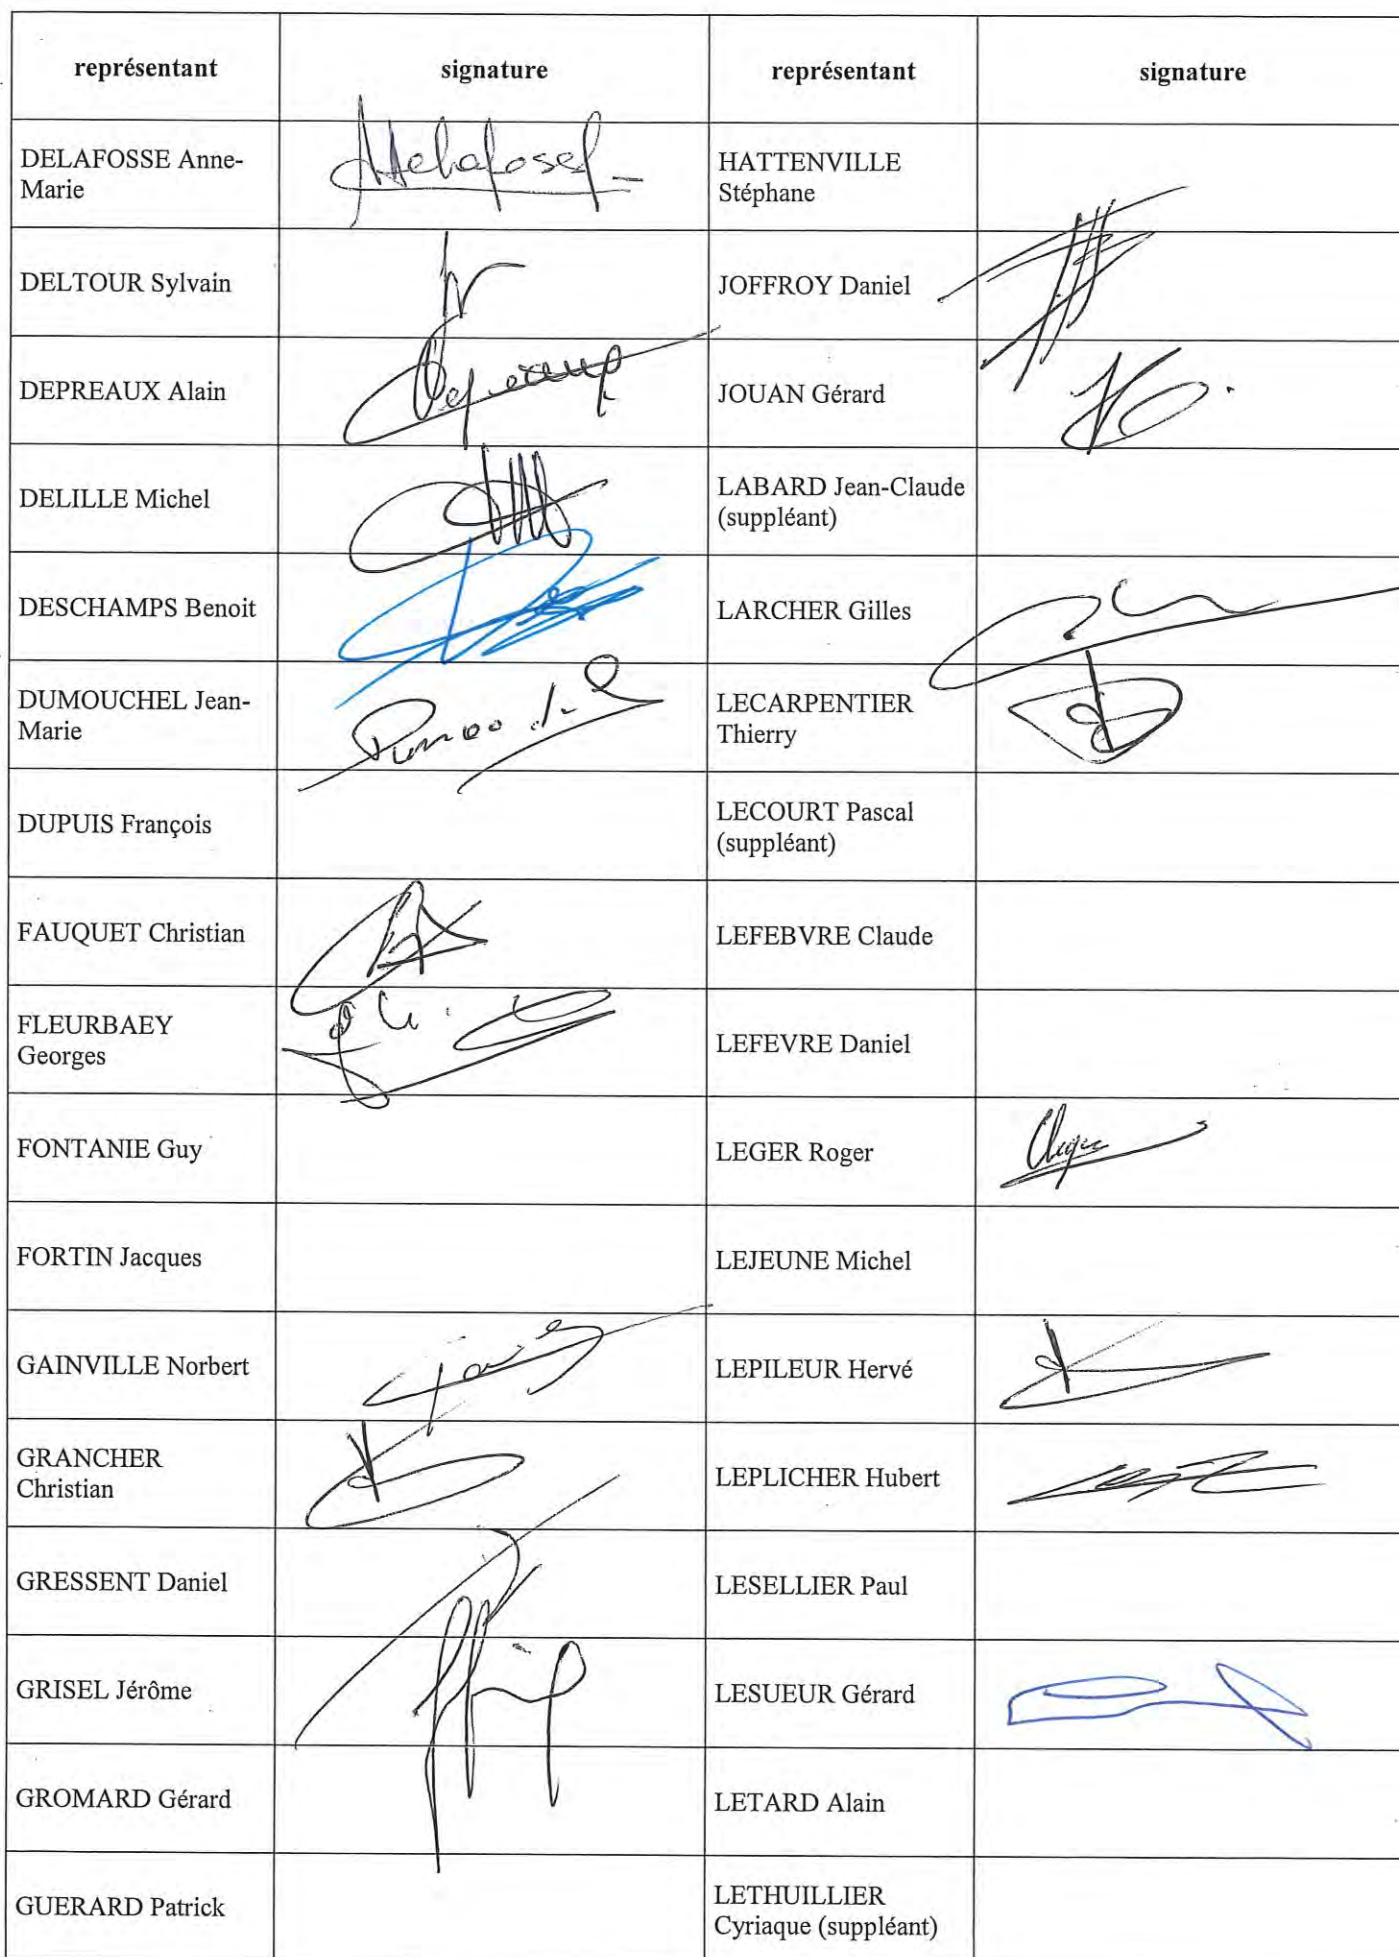 représentant signature représentant signature
DELAFOSSE Anne-
Marie
HATTENVILLE
Stéphane
DELTOUR Sylvain
JOFFROY Daniel
DEPREAUX Alain
JOUAN Gérard
DELILLE Michel
LABARD Jean-Claude
(suppléant)
DESCHAMPS Benoit
LARCHER Gilles
DUMOUCHEL Jean-
Marie
LECARPENTIER
Thierry
DUPUIS François
LECOURT Pascal
(suppléant)
FAUQUET Christian
LEFEBVRE Claude
FLEURBAEY
Georges
LEFEVRE Daniel
FONTANIE Guy
LEGER Roger
FORTIN Jacques
LEJEUNE Michel
GAINVILLE Norbert
LEPILEUR Hervé
GRANCHER
Christian
LEPLICHER Hubert
GRESSENT Daniel
LESELLIER Paul
GRISEL Jérôme
LESUEUR Gérard
GROMARD Gérard
LETARD Alain
GUERARD Patrick
LETHUILLIER
Cyriaque (suppléant)